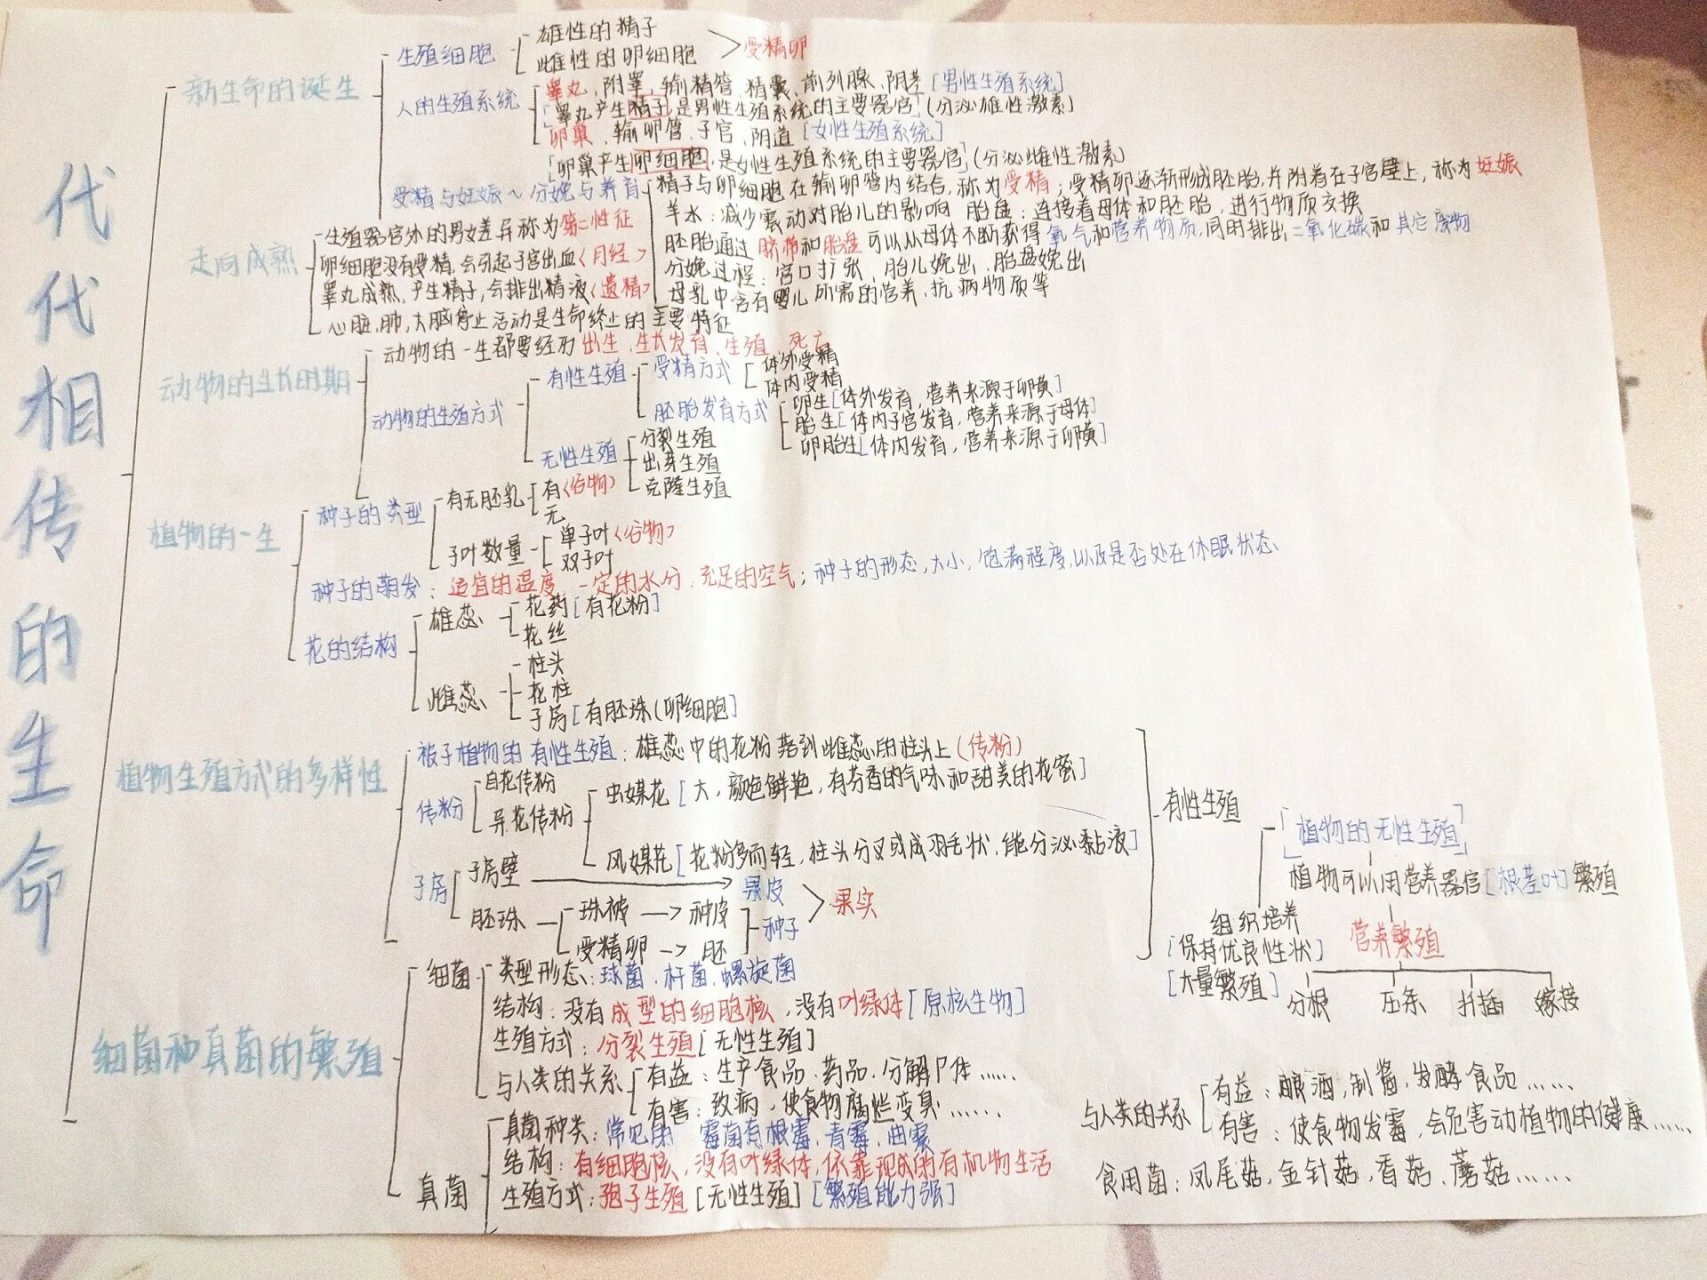 代代相传的生命
新生命的诞生
生殖细胞
雄性的精子
雌性的卵细胞
受精卵
人的生殖系统
睾丸,附睾,输精管,精囊、前列腺、阴茎[男性生殖系统]
「睾丸产生精子」是男性生殖系统的主要器官(分泌雄性激素)
卵巢、输卵管、子宫、阴道[女性生殖系统]
「卵巢产生卵细胞」,是女性生殖系统的主要器官,(分泌雌性激素)
受精与妊娠~分娩与养育
精子与卵细胞在输卵管内结合,称为受精;受精卵逐渐形成胚胎,并附着在子宫壁上,称为妊娠
羊水:减少震动对胎儿的影响 胎盘:连接着母体和胚胎,进行物质交换
胚胎通过脐带和胎盘可以从母体不断获得氧气和营养物质,同时排出二氧化碳和其它废物
分娩过程:宫口扩张、胎儿娩出、胎盘娩出
母乳中含有婴儿所需的营养、抗病物质等
走向成熟
生殖器官外的男女差异称为第二性征
卵细胞没有受精,会引起子宫出血<月经>
睾丸成熟,产生精子,会排出精液<遗精>
心脏,肺,大脑停止活动是生命终止的主要特征
动物的生长时期
动物的一生都要经历出生、生长发育、生殖、死亡
动物的生殖方式
有性生殖
受精方式
体外受精
体内受精
胚胎发育方式
卵生[体外发育,营养来源于卵黄]
胎生[体内子宫发育,营养来源于母体]
卵胎生[体内发育,营养来源于卵黄]
无性生殖
分裂生殖
出芽生殖
克隆生殖
植物的一生
种子的类型
有无胚乳
有<谷物>
无
子叶数量
单子叶<谷物>
双子叶
种子的萌发:适宜的温度、一定的水分,充足的空气;种子的形态,大小,饱满程度,以及是否处在休眠状态
花的结构
雄蕊
花药[有花粉]
花丝
雌蕊
柱头
花柱
子房[有胚珠(卵细胞]
植物生殖方式的多样性
被子植物的有性生殖:雄蕊中的花粉落到雌蕊的柱头上(传粉)
传粉
自花传粉
异花传粉
虫媒花[大,颜色鲜艳,有芬香的气味和甜美的花蜜]
风媒花[花粉多而轻,柱头分叉或成羽毛状,能分泌黏液]
子房
子房壁
果皮
胚珠
珠被→种皮
受精卵→胚
种子
果实
有性生殖
「植物的无性生殖」
植物可以用营养器官[根茎叶]繁殖
组织培养
[保持优良性状]
[大量繁殖]
营养繁殖
分根 压条 扦插 嫁接
细菌和真菌的繁殖
细菌
类型形态:球菌、杆菌、螺旋菌
结构:没有成型的细胞核,没有叶绿体[原核生物]
生殖方式:分裂生殖[无性生殖]
与人类的关系
有益:生产食品、药品、分解尸体……
有害:致病,使食物腐烂变臭……
真菌
真菌种类:常见的 霉菌有根霉,青霉,曲霉
结构:有细胞核,没有叶绿体,依靠现成的有机物生活
生殖方式:孢子生殖[无性生殖][繁殖能力强]
与人类的关系
有益:酿酒,制酱,发酵食品……
有害:使食物发霉,会危害动植物的健康……
食用菌:凤尾菇,金针菇,香菇、蘑菇……